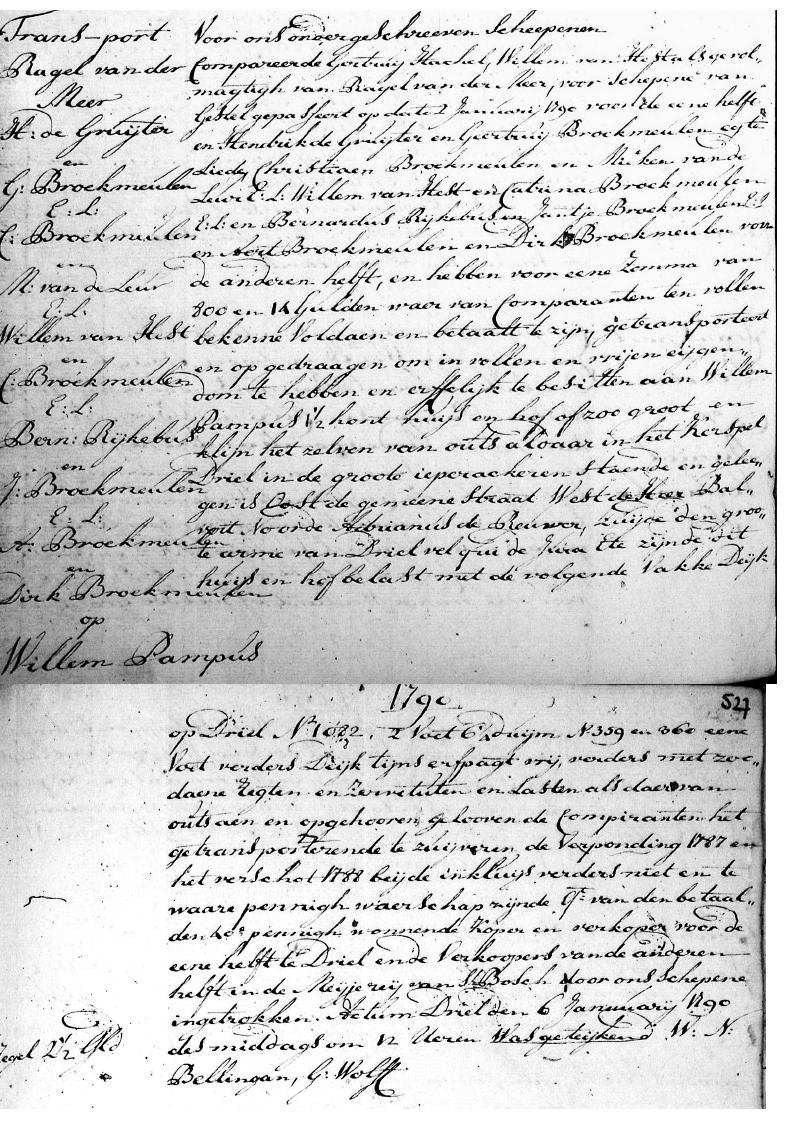 Trans-port
Ragel van der
Meer
H: de Gruijter
en
G: Broekmeulen
E: L:
C: Broekmeulen
en
M: van de Leur
E: L:
Willem van Hest
en
C: Broekmeulen
E: L:
Bern: Rijkebus
en
J: Broekmeulen
E: L:
A: Broekmeulen
en
Dirk Broekmeulen
op
Willem Pampus
Voor ons ondergeschreeven Scheepenen
Compareerde Willem van Hest als gevol„
magtigh van Ragel van der Meer, voor schepene van
Gestel gepasseert op dato 2 Januarij 1790 voor de eene helft
en Hendrik de Gruijter en Geertruij Broekmeulen egte
Liede, Christiaen Broekmeulen en Mieken van de
Leur E: L: Willem van Hest en Catrina Broekmeulen
E: L: en Bernardus Rijkebus en Jantje Broekmeulen E: L
en Aort Broekmeulen en Dirk Broekmeulen voor
de anderen helft, en hebben voor eene Zomma van
800 en 14 Gulden waer van Comparanten ten vollen
bekenne Voldaen en betaalt te zijn, getransporteert
en op gedraagen om in vollen en vrijen eijgen„
dom te hebben en erffelijk te besitten aan Willem
Pampus 1½ hont huijs en hof of zoo groot en
klijn het zelven van outs aldaar in het Kerspel
Driel in de groote ieperackeren staende en gelee„
gen is Oost de gemeene straat West de Heer Bal„
voort Noorde Adrianus de Reuwer, zuijde den groo„
te arme van Driel vel qui de Jura tte zijnde dit
huijs en hof belast met de volgende Vakke Deijk
1790
527
op Driel N: 1022, 2 Voet 6½ duijm N 359 en 360 eene
Voet verders Deijk tijns erfpagt vrij, verders met zoo„
daene Regten en Zerviteuten en Lasten als daervan
outs aen en opgehooren, gelooven de Compiranten het
getransporterende te zuijveren de Verponding 1787 en
het verschot 1788 beijde inkluijs verders niet en te
waare pennigh waerschap zijnde Qt: van den betaal„
den 40e pennigh wonnende Koper en verkoper voor de
eene helft te Driel en de Verkoopers van de anderen
helft in de Meijerij van St Bosch door ons schepene
ingetrokken. Actum Driel den 6 Januarij 1790
des middags om 12 Ueren Was geteijkend W: N:
Bellingan, G: Wolff
Zegel 2½ Gld